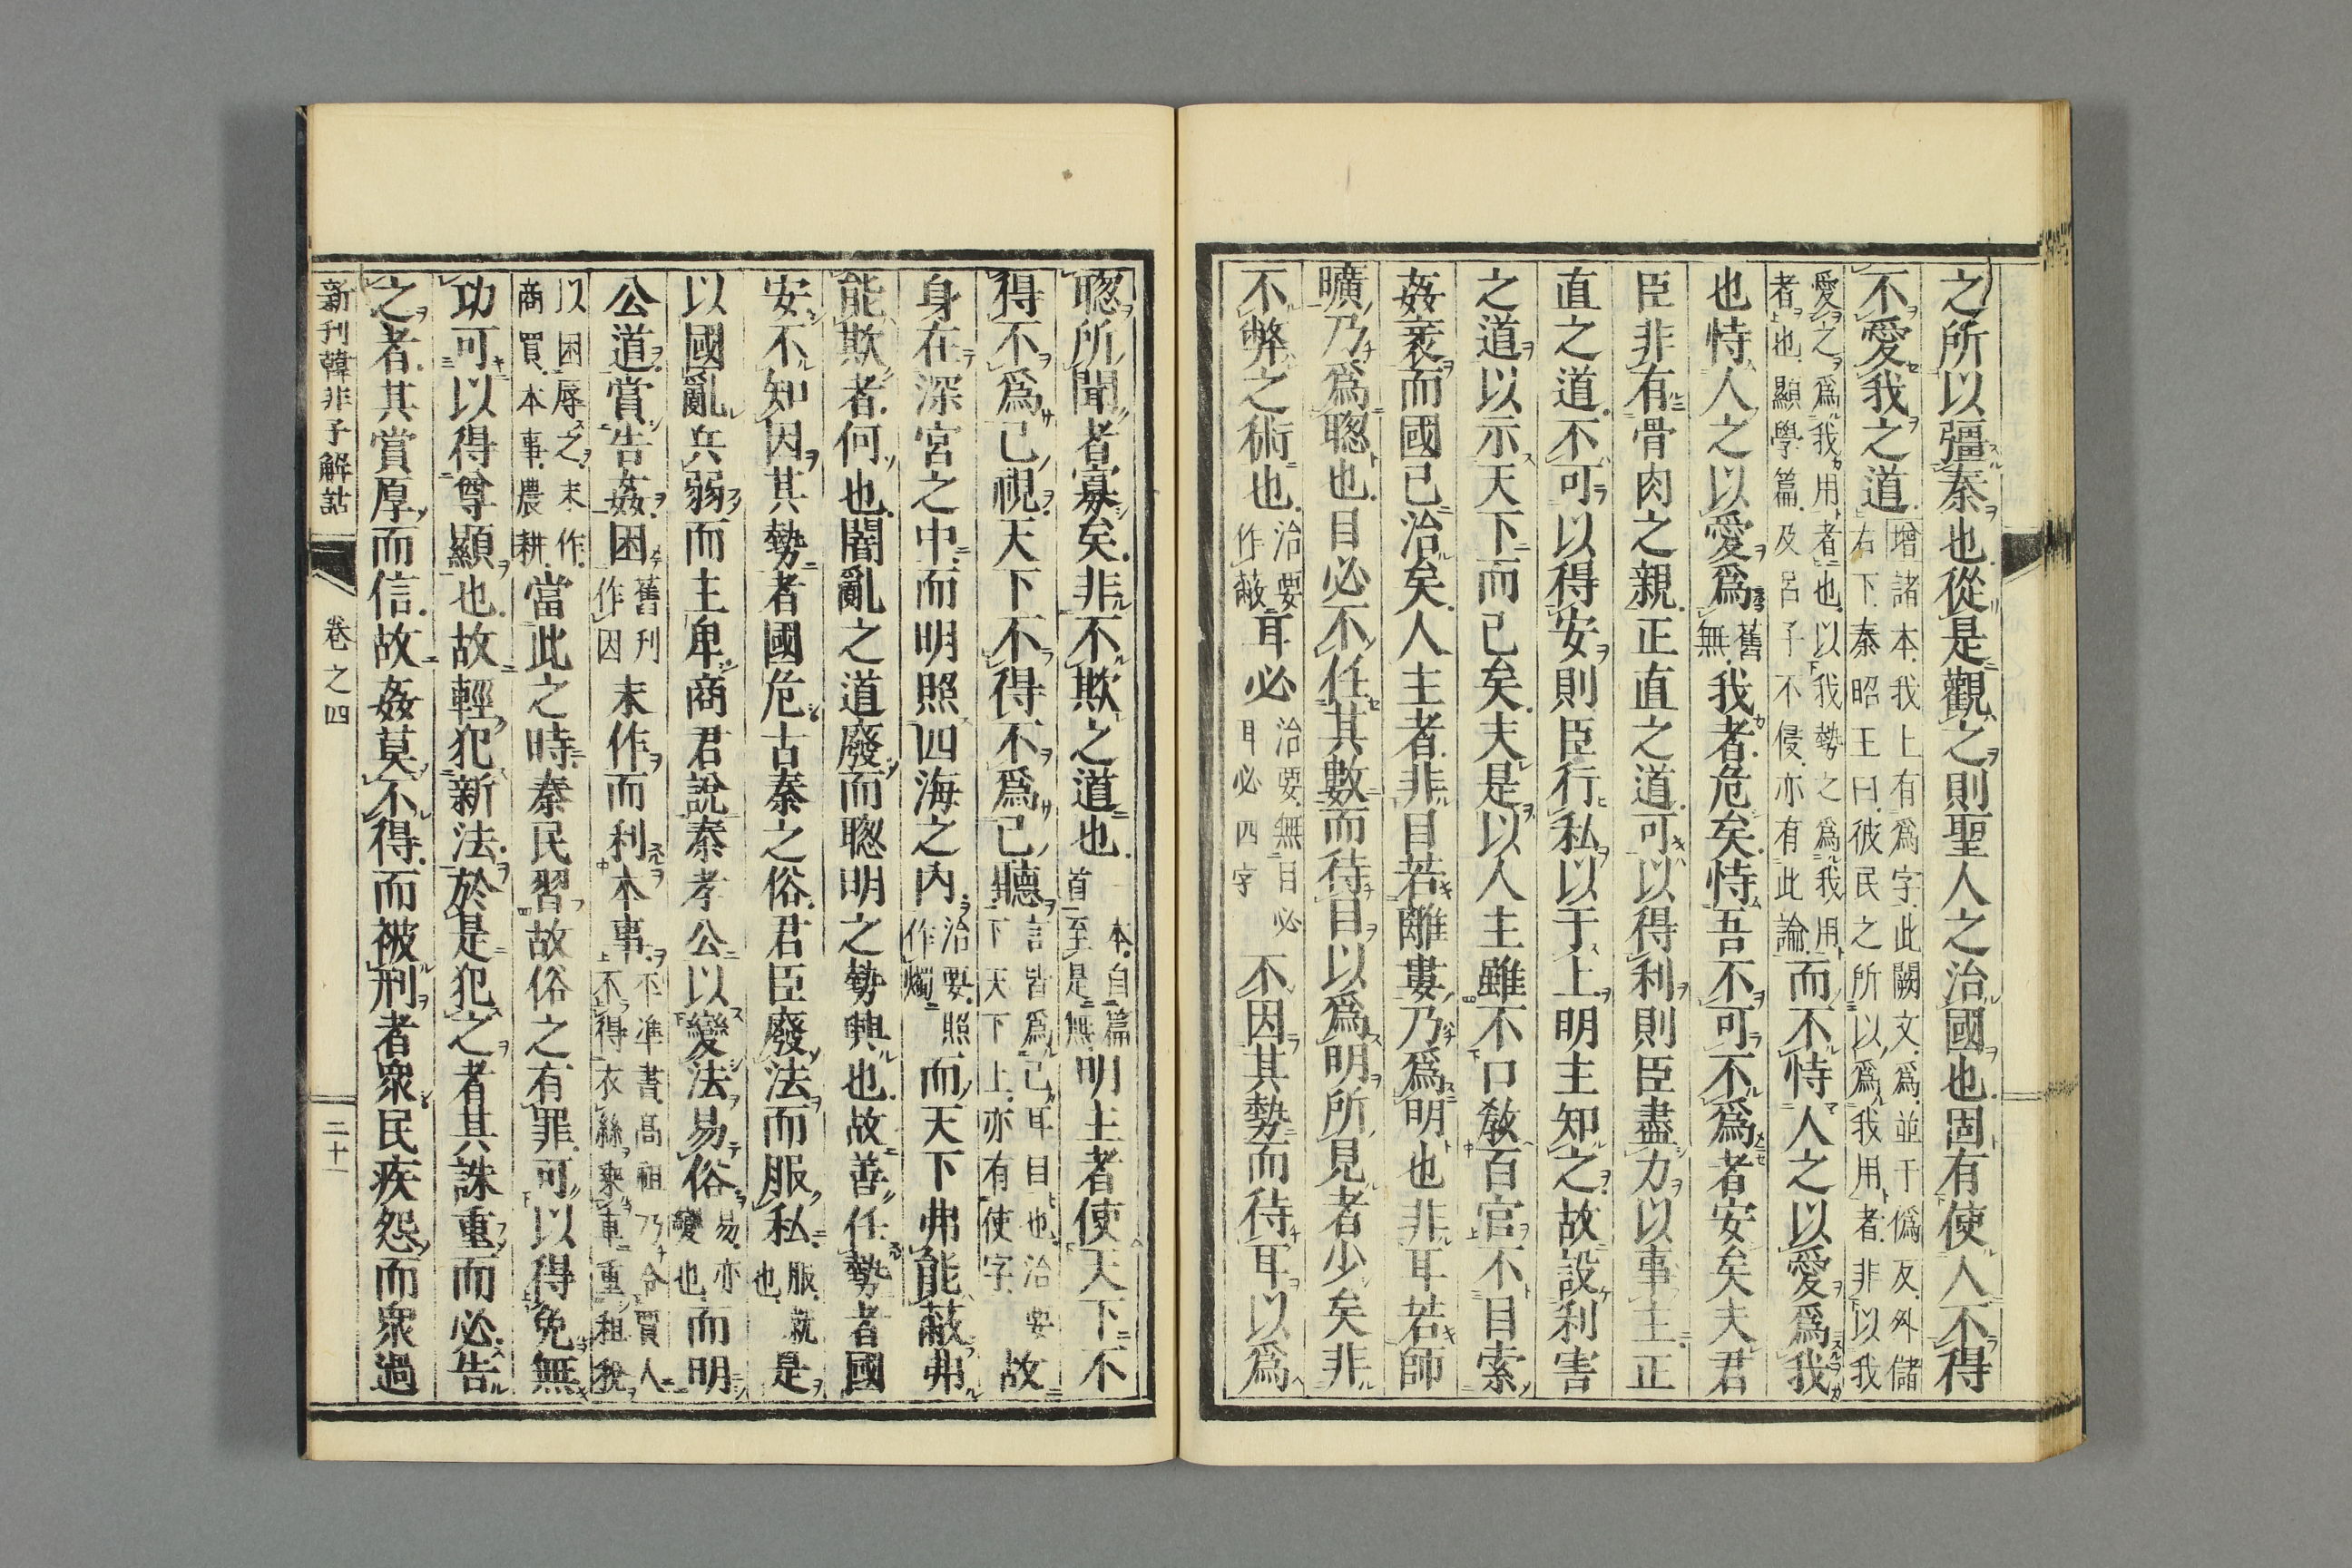 之所以彊秦也從是觀之則聖人之治國也固有使人不得
不愛我之道增諸本我上有爲字此闕文爲並于僞反外儲右下秦昭王曰彼民之所以爲我用者非以我
愛之爲我用者也以我勢之爲我用者也顯學篇及呂子不侵亦有此論而不恃人之以愛爲我
也恃人之以愛爲舊無我者危矣恃吾不可不爲者安矣夫君
臣非有骨肉之親正直之道可以得利則臣盡力以事主正
直之道不可以得安則臣行私以于上明主知之故設利害
之道以示天下而已矣夫是以人主雖不口敎百官不目索
姦衺而國已治矣人主者非目若離婁乃爲明也非耳若師
曠乃爲聰也目必不任其數而待目以爲明所見者少矣非
不弊之術也治要作蔽耳必治要無目必耳必四字不因其勢而待耳以爲
聰所聞者寡矣非不欺之道也一本自篇首至是無明主者使天下不
得不爲已視天下不得不爲已聽言皆爲己耳目也治要下天下上亦有使字故
身在深宮之中而明照四海之內治要照作燭而天下弗能蔽弗
能欺者何也闇亂之道廢而聰明之勢興也故善任勢者國
安不知因其勢者國危古秦之俗君臣廢法而服私服就也是
以國亂兵弱而主卑商君說秦孝公以變法易俗易亦變也而明
公道賞告姦困舊刊作因末作而利本事平準書高祖乃令買人不得衣絲乘車重租稅
以困辱之末作商買本事農耕當此之時秦民習故俗之有罪可以得免無
功可以得尊顯也故輕犯新法於是犯之者其誅重而必告
之者其賞厚而信故姦莫不得而被刑者衆民疾怨而衆過
新刊韓非子解詁 卷之四 二十一